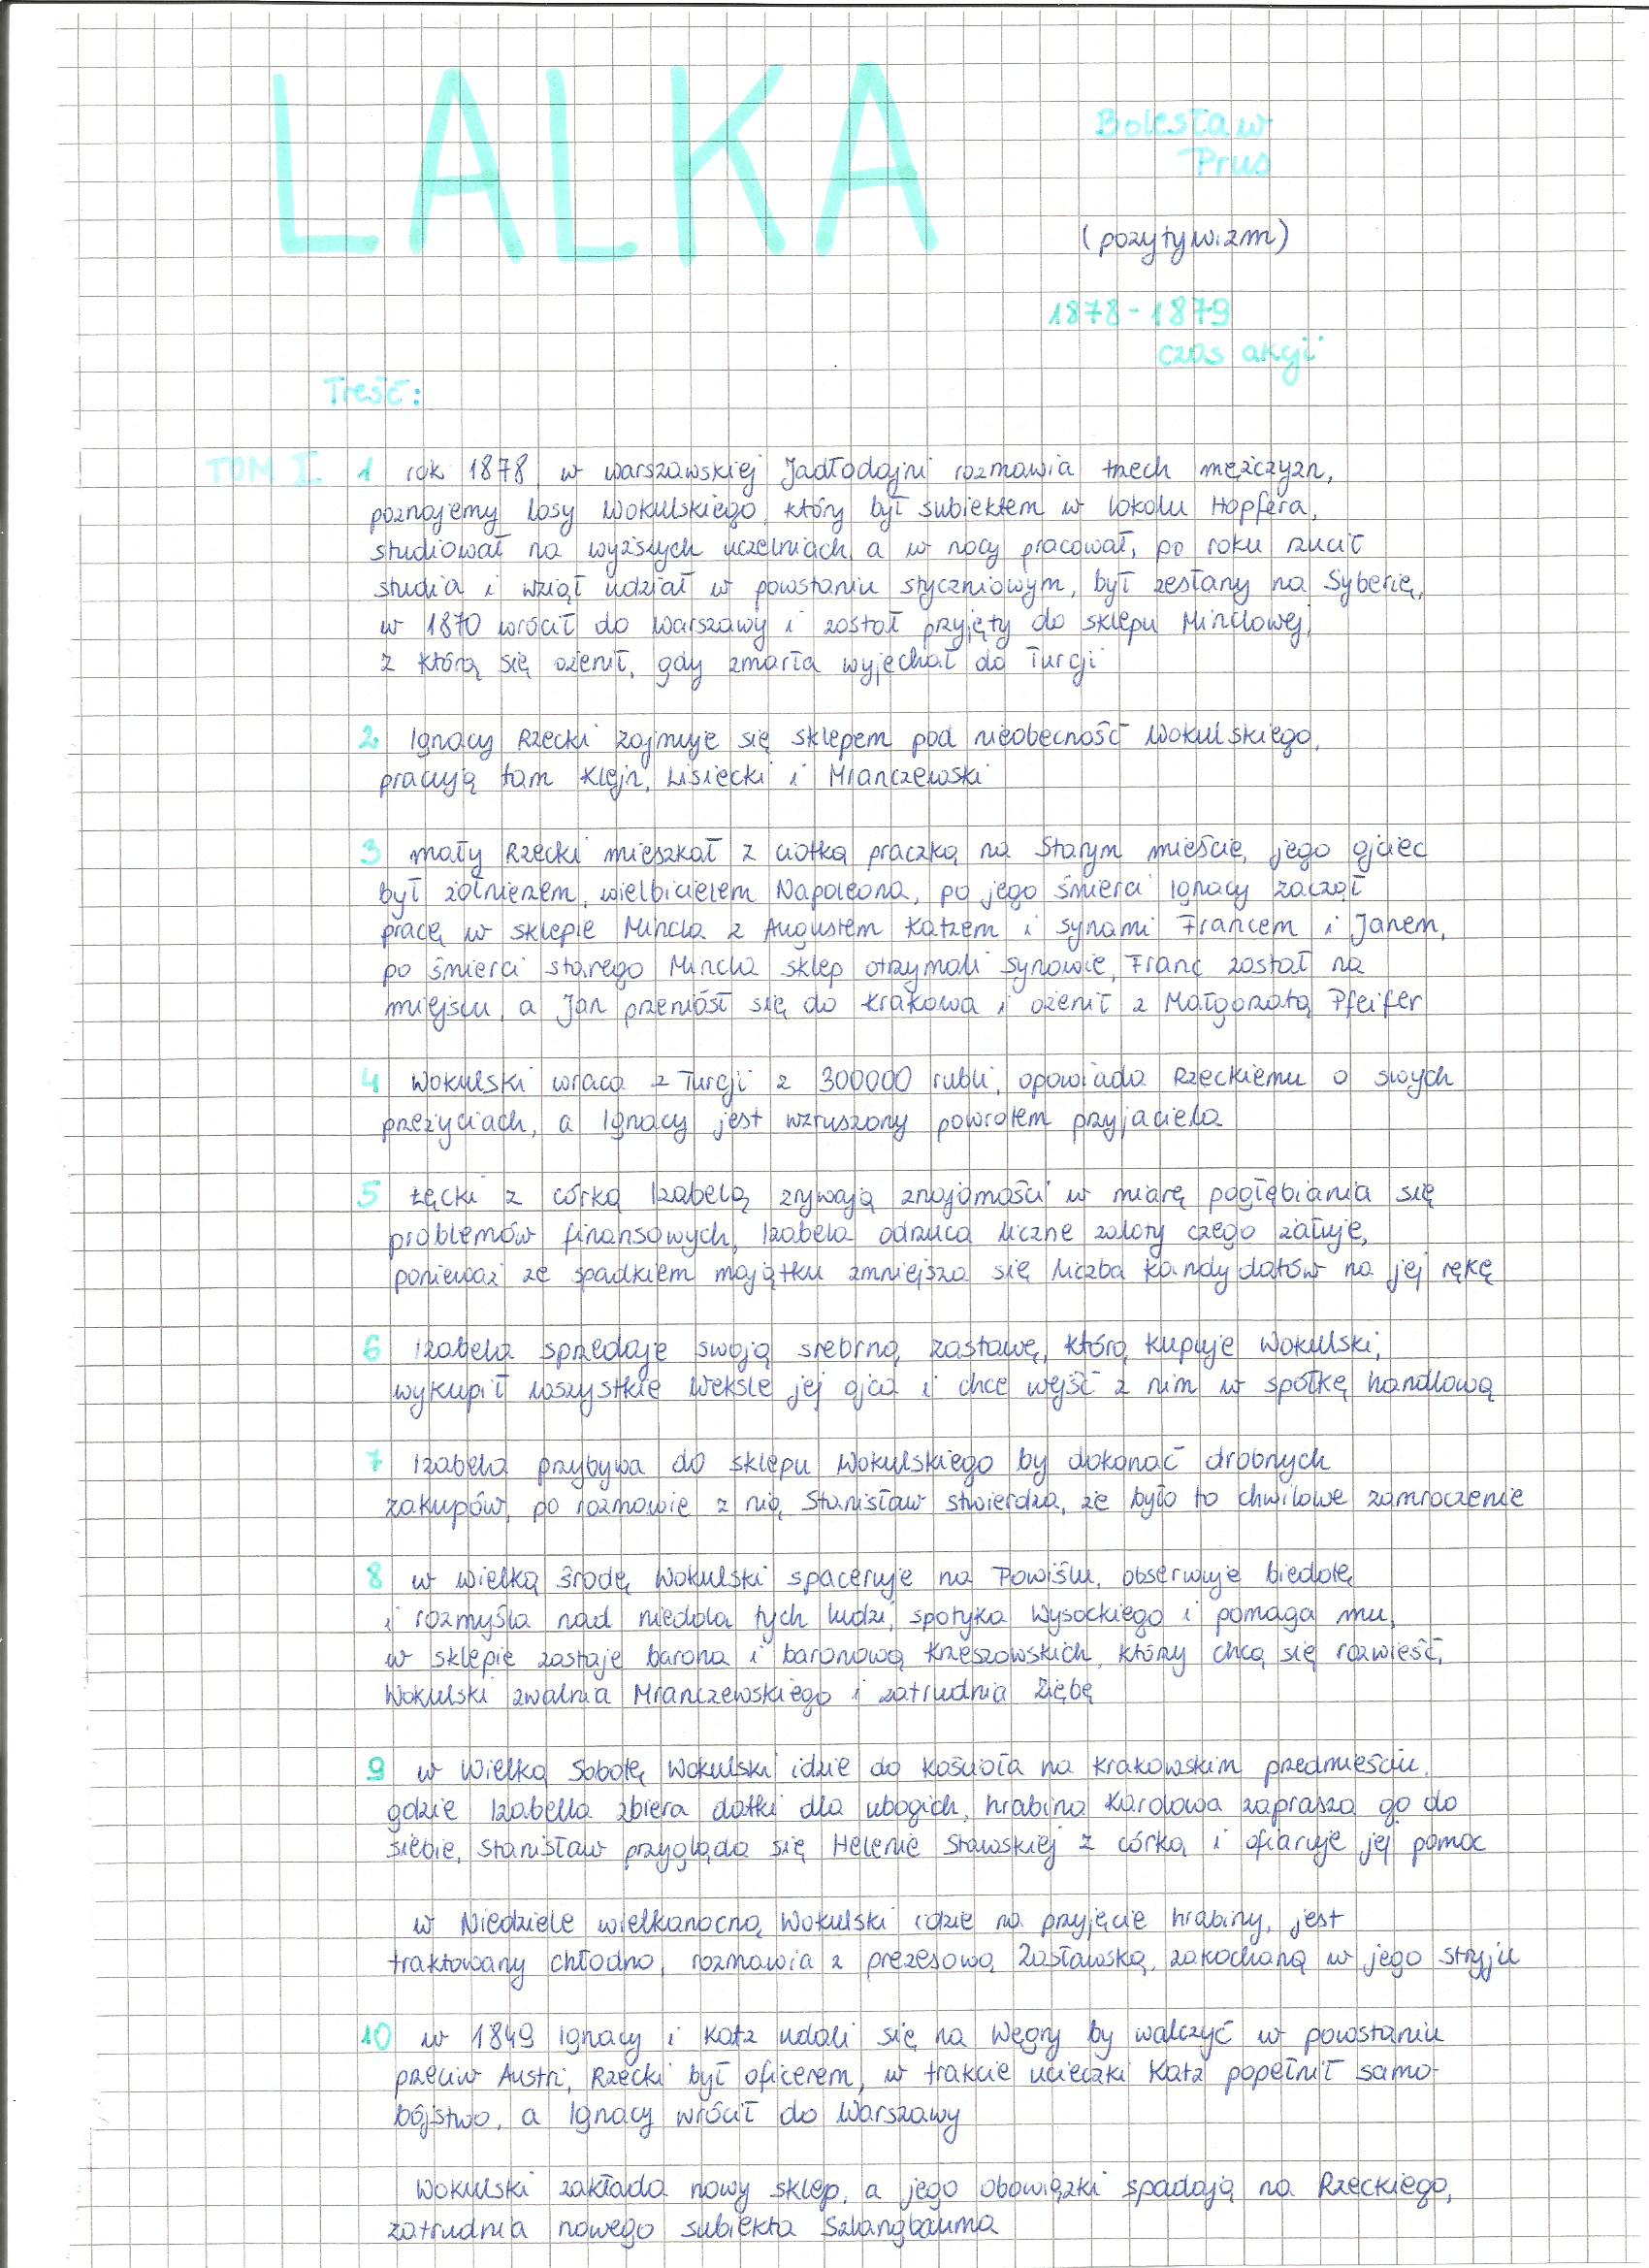 LALKA
Bolesław
Prus
(pozytywizm)
1878-1879
czas akcji
Treść:
TOM I. 1 rok 1878, w warszawskiej Jadłodajni rozmawia trzech mężczyzn,
poznajemy losy Wokulskiego, który był subiektem w lokalu Hopfera,
studiował na wyższych uczelniach, a w nocy pracował, po roku rzucił
studia i wziął udział w powstaniu styczniowym, był zesłany na Syberię,
w 1870 wrócił do Warszawy i został przyjęty do sklepu Minclowej,
z którą się ożenił, gdy zmarła wyjechał do Turcji
2 Ignacy Rzecki zajmuje się sklepem pod nieobecność Wokulskiego,
pracują tam Klejn, Lisiecki i Mranczewski
3 mały Rzecki mieszkał z ciotką praczką na Starym mieście, jego ojciec
był żołnierzem, wielbicielem Napoleona, po jego śmierci Ignacy zaczął
pracę w sklepie Mincla z Augustem Katzem i synami Francem i Janem,
po śmierci starego Mincla sklep otrzymali synowie, Franc został na
miejscu, a Jan przeniósł się do Krakowa i ożenił z Małgorzatą Pfeifer
4 Wokulski wraca z Turcji z 300000 rubli, opowiada Rzeckiemu o swych
przeżyciach, a Ignacy jest wzruszony powrotem przyjaciela
5 Łęcki z córką Izabelą zrywają znajomości w miarę pogłębiania się
problemów finansowych, Izabela odrzuca liczne zaloty czego żałuje,
ponieważ ze spadkiem majątku zmniejsza się liczba kandydatów na jej rękę
6 Izabela sprzedaje swoją srebrną zastawę, którą kupuje Wokulski,
wykupił wszystkie weksle jej ojca i chce wejść z nim w spółkę handlową
7 Izabela przybywa do sklepu Wokulskiego by dokonać drobnych
zakupów, po rozmowie z nią, Stanisław stwierdza, że było to chwilowe zamroczenie
8 w wielką środę Wokulski spaceruje na Powiślu, obserwuje biedotę
i rozmyśla nad niedolą tych ludzi, spotyka Wysockiego i pomaga mu,
w sklepie zastaje barona i baronową Krzeszowskich, którzy chcą się rozwieść,
Wokulski zwalnia Mranczewskiego i zatrudnia Ziębę
9 w Wielką Sobotę Wokulski idzie do kościoła na krakowskim przedmieściu,
gdzie Izabella zbiera datki dla ubogich, hrabina Karolowa zaprasza go do
siebie, Stanisław przygląda się Helenie Stawskiej z córką i ofiaruje jej pomoc
w Niedziele wielkanocną Wokulski idzie na przyjęcie hrabiny, jest
traktowany chłodno, rozmawia z prezesową Zasławską, zakochaną w jego stryju
10 w 1849 Ignacy i Katz udali się na Węgry by walczyć w powstaniu
przeciw Austri, Rzecki był oficerem, w trakcie ucieczki Katz popełnił samo-
bójstwo, a Ignacy wrócił do Warszawy
Wokulski zakłada nowy sklep, a jego obowiązki spadają na Rzeckiego,
zatrudnia nowego subiekta Szlangbauma